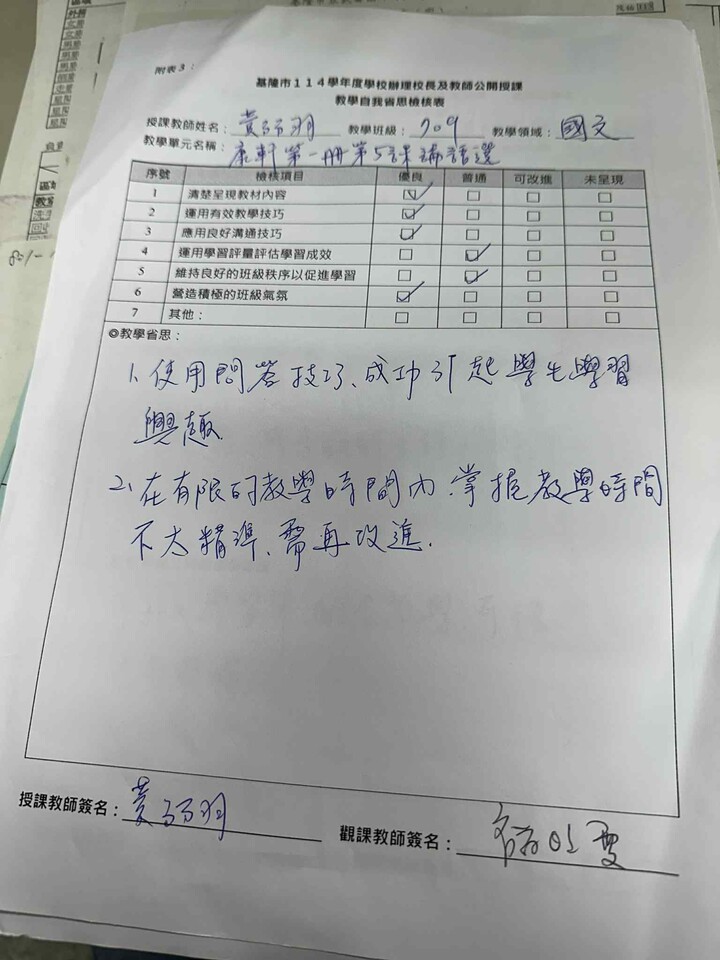 附表3：
基隆市114學年度學校辦理校長及教師公開授課
教學自我省思檢核表
授課教師姓名：黃 羽 教學班級：709 教學領域：國文
教學單元名稱：康軒第一冊第5課論語選
序號 檢核項目 優良 普通 可改進 未呈現
1 清楚呈現教材內容 ☑ □ □ □
2 運用有效教學技巧 ☑ □ □ □
3 應用良好溝通技巧 ☑ □ □ □
4 運用學習評量評估學習成效 □ ☑ □ □
5 維持良好的班級秩序以促進學習 □ ☑ □ □
6 營造積極的班級氣氛 ☑ □ □ □
7 其他： □ □ □ □
◎教學省思：
1、使用問答技巧、成功引起學生學習
興趣
2、在有限的教學時間內、掌握教學時間
不太精準、需再改進.
授課教師簽名：黃 羽
觀課教師簽名：